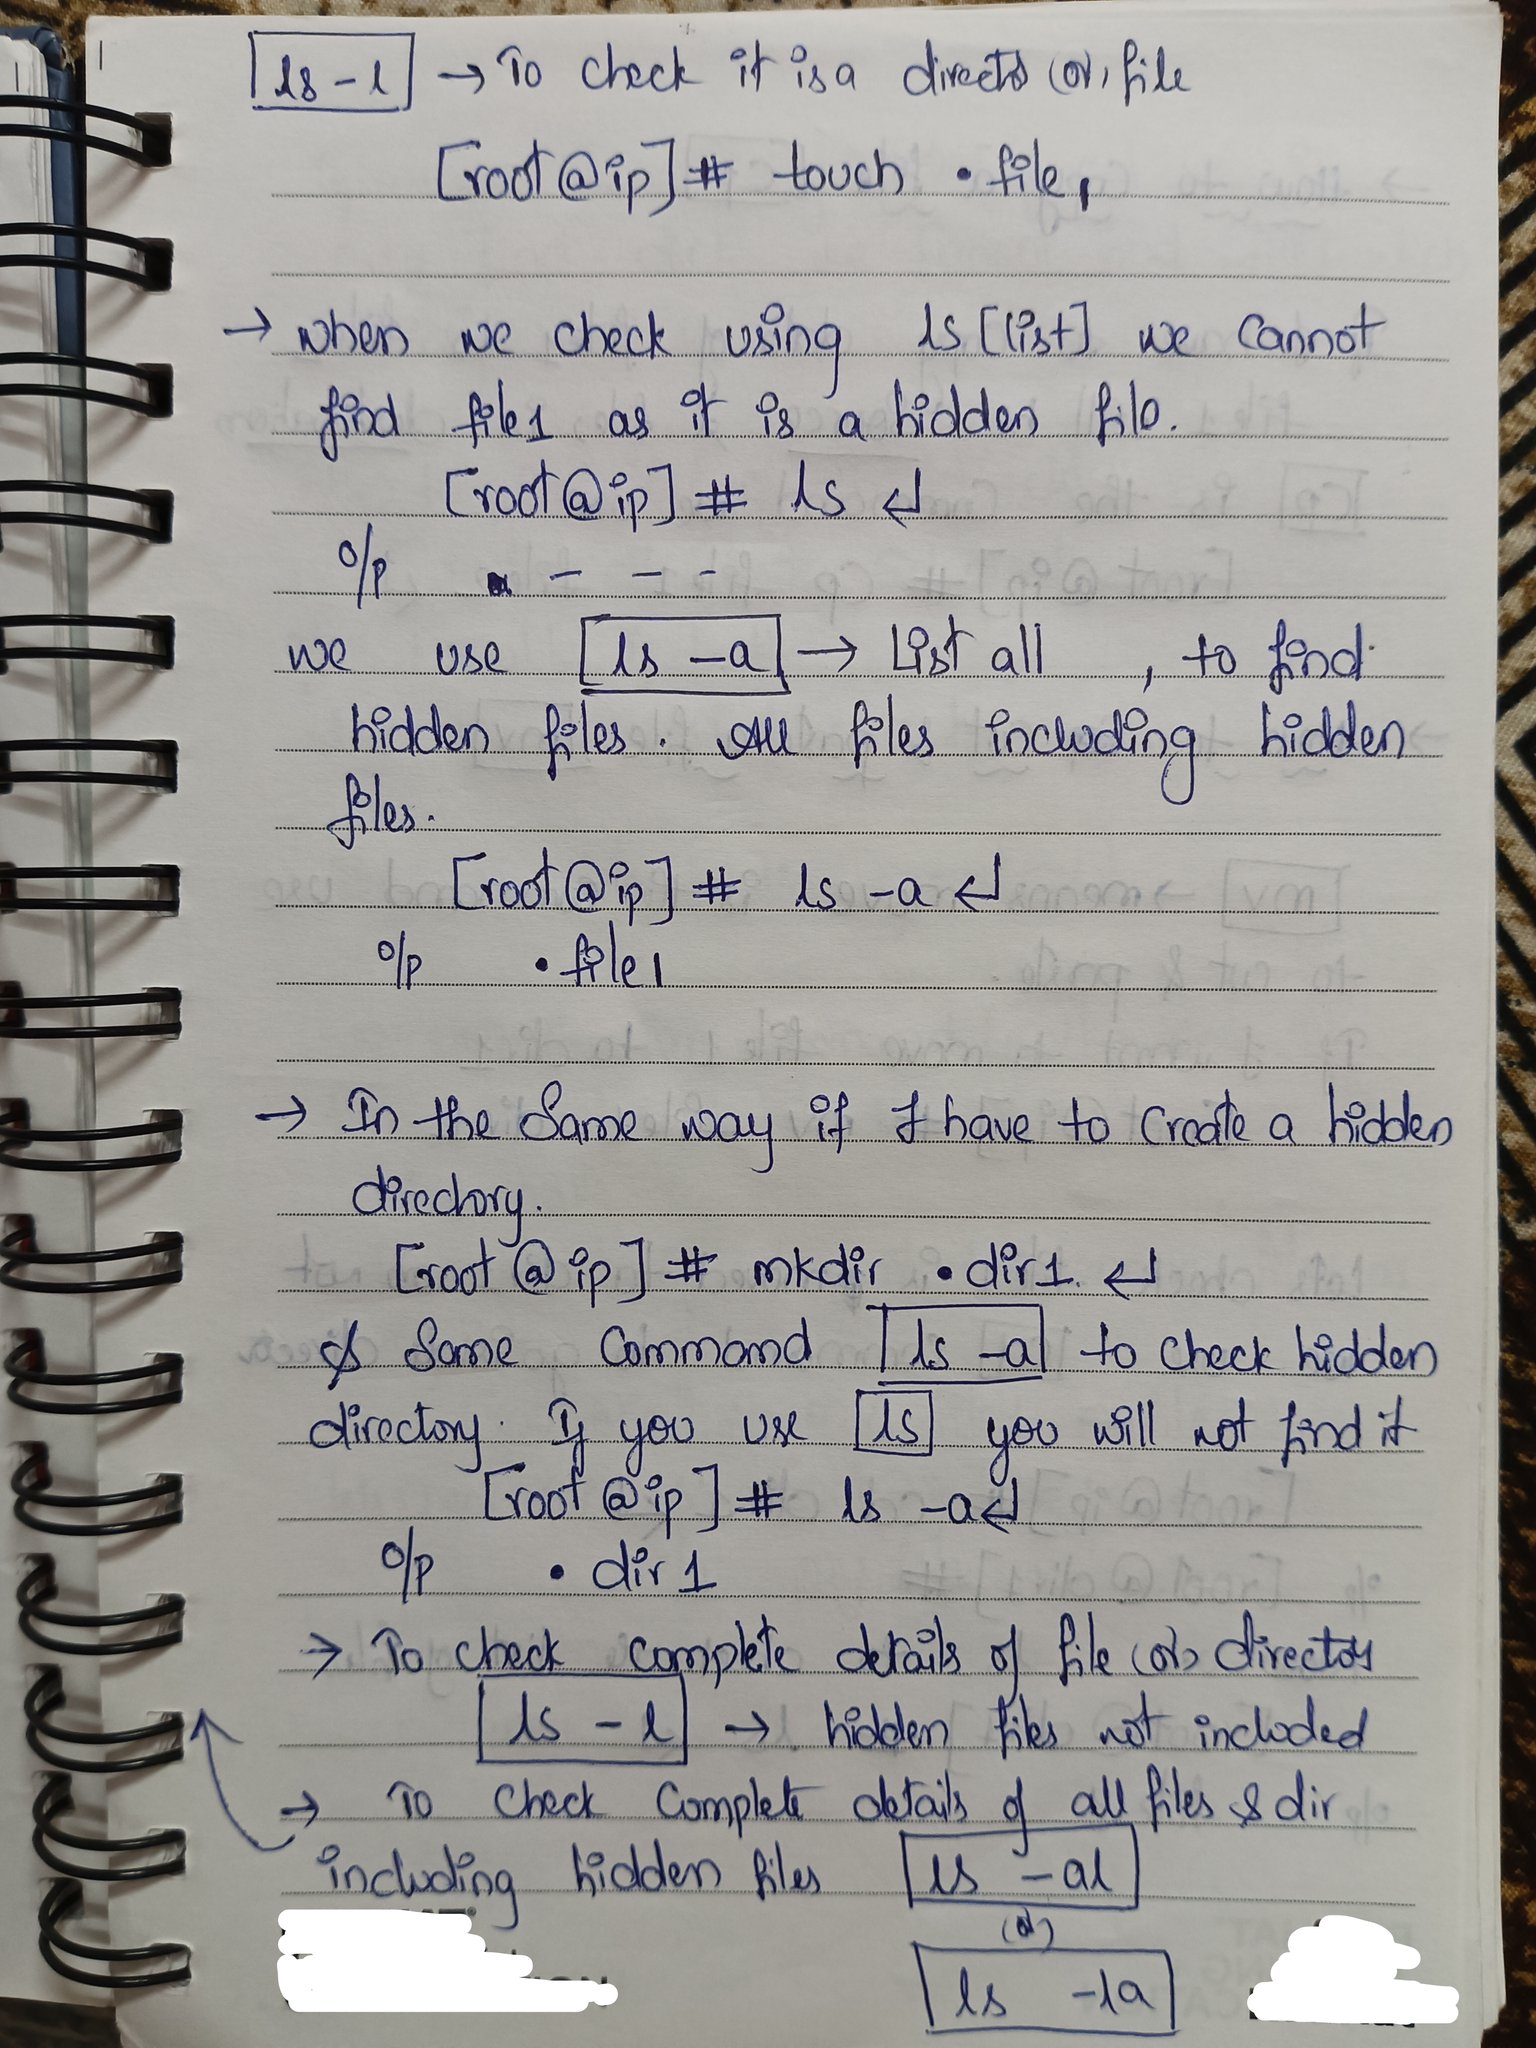 ls -l → To check it is a directo (or) file
[root@ip]# touch .file1
→ when we check using ls [list] we cannot
find file1 as it is a hidden file.
[root@ip]# ls ↵
o/p - - -
we use ls -a → List all , to find
hidden files. All files including hidden
files.
[root@ip]# ls -a ↵
o/p .file1
→ In the same way if I have to create a hidden
directory.
[root@ip]# mkdir .dir1 ↵
& Same Command ls -a to check hidden
directory. If you use ls you will not find it
[root@ip]# ls -a ↵
o/p .dir1
→ To check complete details of file (or) director
ls -l → hidden files not included
→ To check complete details of all files & dir
including hidden files ls -al
(or)
ls -la